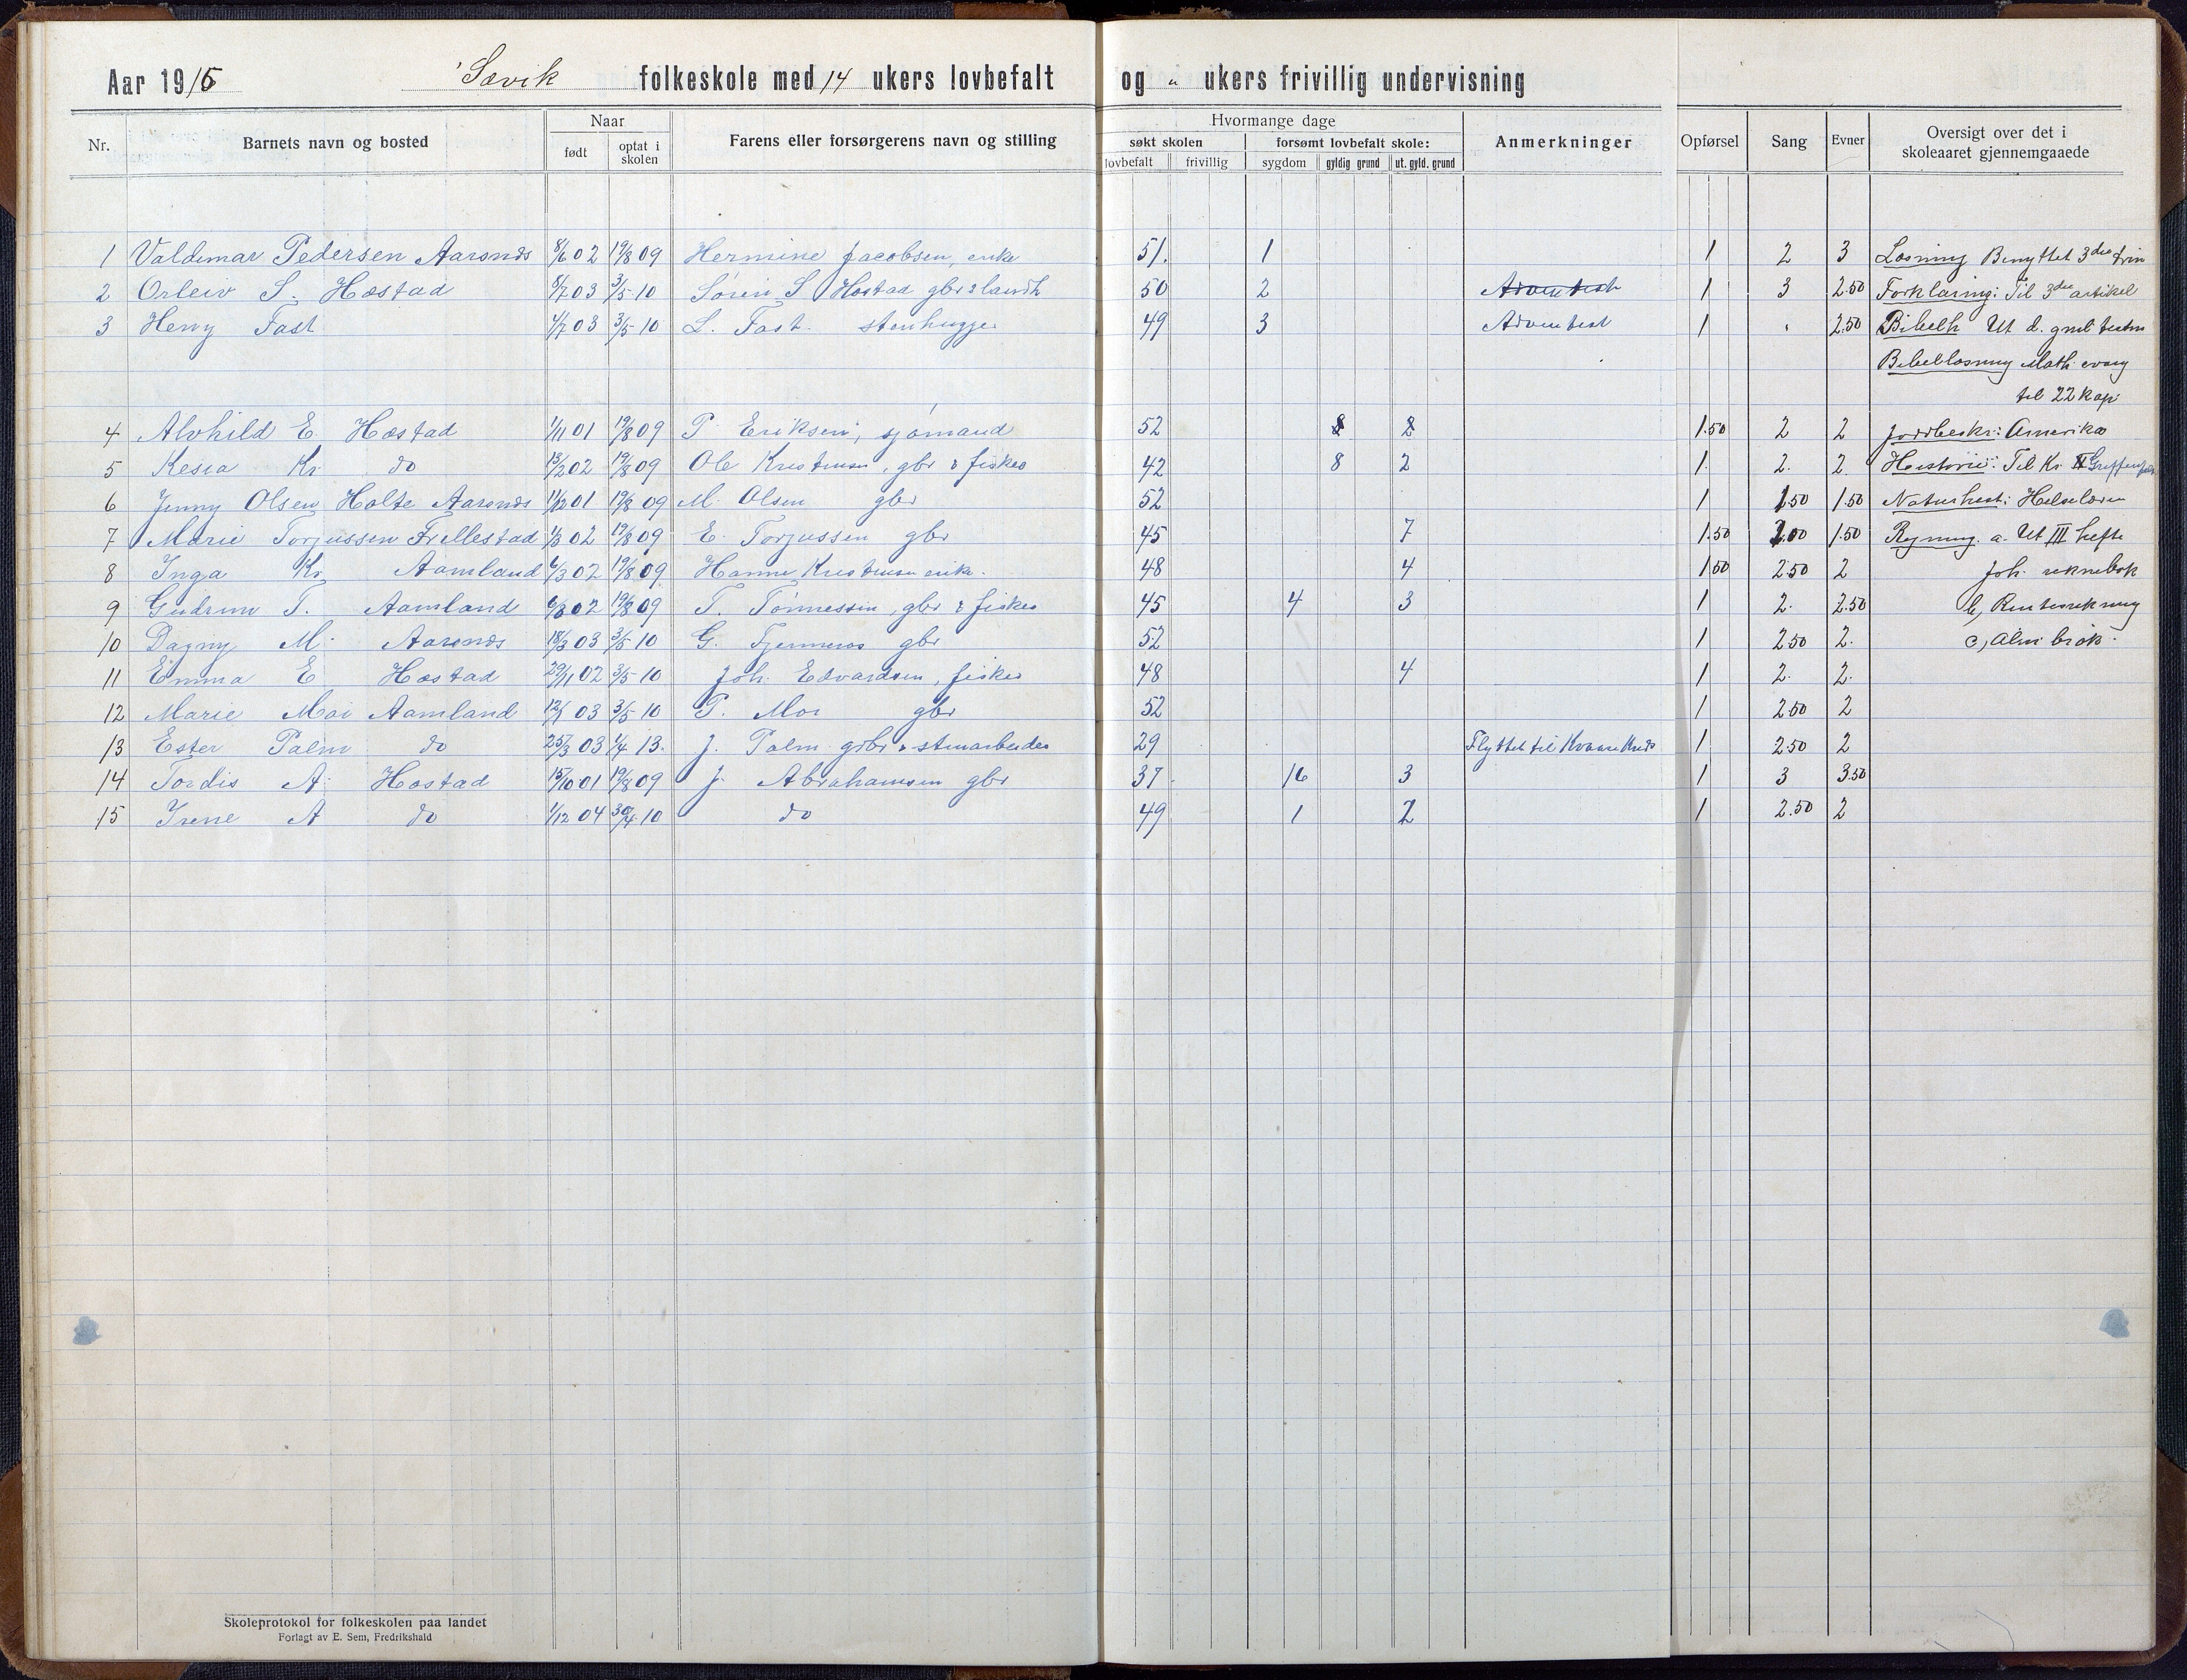 Aar 1915 Sævik folkeskole med 14 ukers lovbefalt og " ukers frivillig undervisning
Nr. Barnets navn og bosted Naar Farens eller forsørgerens navn og stilling Hvormange dage Anmerkninger Opførsel Sang Evner Oversigt over det i skoleaaret gjennemgaaede
født optat i skolen søkt skolen forsømt lovbefalt skole:
lovbefalt frivillig sygdom gyldig grund ut. gyld. grund
1 Valdemar Pedersen Aarsnæs 8/6 02 19/8 09 Hermine Jacobsen, enke 51. 1 1 2 3 Læsning Benyttet 3die trin
2 Orleiv S. Hæstad 8/7 03 3/5-10 Søren S. Hæstad gbr & landh 50 2 Adventist 1 3 2.50 Forklaring: Til 3die artikel
3 Henry Fast 4/7 03 3/5-10 L. Fast. stenhugger 49 3 Adventist 1 " 2.50 Bibelh Ut d. gml. testm
Bibellæsning Math. evang
til 22 kap
4 Alvhild E. Hæstad 1/11 01 19/8 09 P. Eriksen, sjømand 52 8 2 1.50 2 2 Jordbeskr: Amerika
5 Kesia Kr. do 13/2 02 19/8 09 Ole Kristensen, gbr & fisker 42 8 2 1. 2. 2. Historie: Til Kr. Griffenfeld
6 Jenny Olsen Holte Aarsnæs 11/12 01 19/8 09 M. Olsen gbr 52 1 1.50 1.50 Naturhist: Helselæren
7 Marie Torjussen Frellestad 1/3 02 19/8 09 E. Torjussen gbr 45 7 1.50 2.00 1.50 Regning. a. Ut III hefte
8 Inga Kr. Aamland 6/3 02 19/8 09 Hanne Kristensen enke. 48 4 1.50 2.50 2 Joh. reknebok
9 Gudrun T. Aamland 6/8 02 19/8 09 T. Tønnessen, gbr & fisker 45 4 3 1 2. 2.50 b, Renteregning
10 Dagny M. Aarsnæs 18/3 03 3/5 10 G. Fjermeros gbr 52 1 2.50 2. c, Alm brøk.
11 Emma E Hæstad 29/11 02 3/5-10 Joh. Edvardsen, fisker 48 4 1 2. 2.
12 Marie Moi Aamland 12/1 03 3/5 10 T. Moi gbr 52 1 2.50 2
13 Ester Palm do 25/3 03 1/4 13. J. Palm grbr & stenarbeider 29 Flyttet til Kvanne Kreds 1 2.50 2
14 Tordis A. Hæstad 15/10 01 19/8 09 J. Abrahamsen gbr 37 16 3 1 3 3.50
15 Irene A do 1/12 04 30/4 10 do 49 1 2 1 2.50 2
Skoleprotokol for folkeskolen paa landet
Forlagt av E. Sem, Fredrikshald